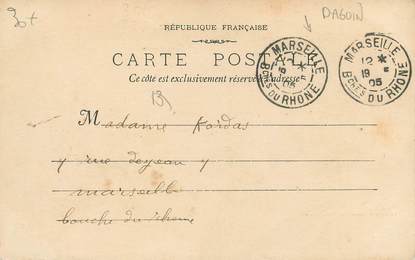 30+
DAGUIN
RÉPUBLIQUE FRANÇAISE
CARTE POSTALE
Ce côté est exclusivement réservé à l'adresse
MARSEILLE
Bches DU RHONE
05
MARSEILLE
12 *
19 5
05
Bches DU RHONE
13
Madame Kordas
4 rue
marseille
bouche du rhone